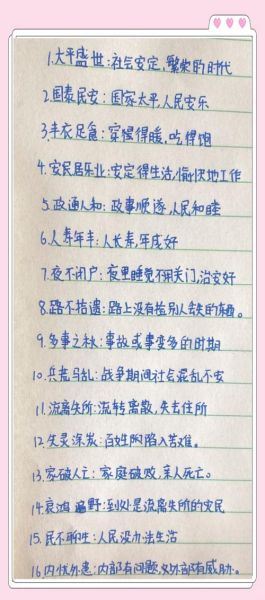 1.太平盛世:社会安定,繁荣的时代
2.国泰民安:国家太平,人民安乐
3.丰衣足食:穿得暖,吃得饱
4.安居乐业:安定得生活,愉快地工作
5.政通人和:政事顺遂,人民和睦
6.人寿年丰:人长寿,年成好
7.夜不闭户:夜里睡觉不用关门,治安好
8.路不拾遗:路上没有捡别人丢失的东西。
9.多事之秋:事故或事变多的时期
10.兵荒马乱:战争期间社会混乱不安
11.流离失所:流转离散,失去住所
12.生灵涂炭:百姓陷入苦难。
13.家破人亡:家庭破败,亲人死亡。
14.哀鸿遍野:到处是流离失所的灾民
15.民不聊生:人民没办法生活
16.内忧外患:内部有问题,外部有威胁。